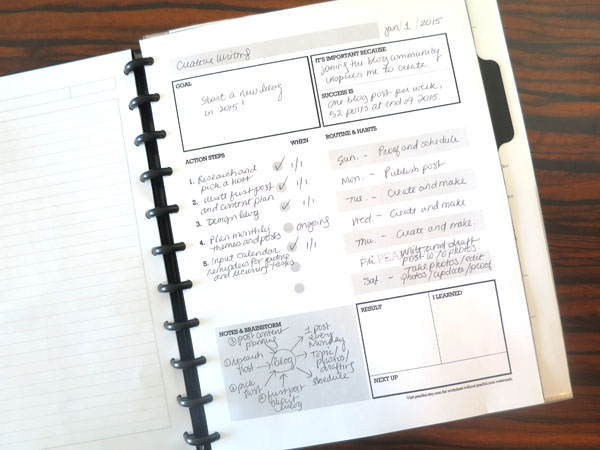 Creative Writing
jan/1/2015
GOAL
Start a new blog
in 2015!
IT'S IMPORTANT BECAUSE
joining the blog community
inspires me to create.
SUCCESS IS
One blog post per week,
52 posts at end of 2015.
ACTION STEPS
WHEN
1. Research and
pick a host
1/1
2. Write first post
and content plan
1/1
3. Design blog
1/1
4. Plan monthly
themes and posts
ongoing
5. Input calendar
reminders for routine
and recurring tasks
1/1
ROUTINE & HABITS
Sun. - Proof and schedule
Mon. - Publish post
Tue. - Create and make
Wed. - Create and make
Thu. - Create and make.
Fri Write and draft
post w/o photos.
Sat. - Take photos/edit
photos/update/proof
NOTES & BRAINSTORM
③ post content
planning
② research
host
① pick
host
④ first post
about
blog
blog
1 post
every
Monday
Topic/
photo/
drafting
schedule
RESULT
I LEARNED
NEXT UP